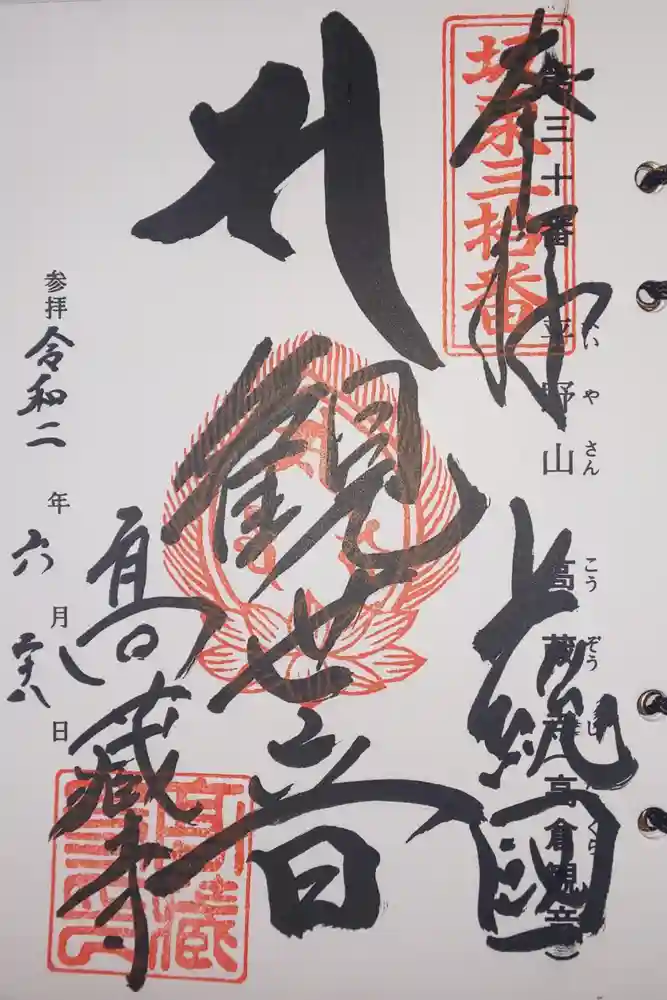 奉拝
坂東三拾番
第三十番 平野山 高蔵寺(高倉観音)
いやさん こうぞうじ くら
上総國
観世音
高蔵寺
高藏
参拝 令和二年六月二十八日